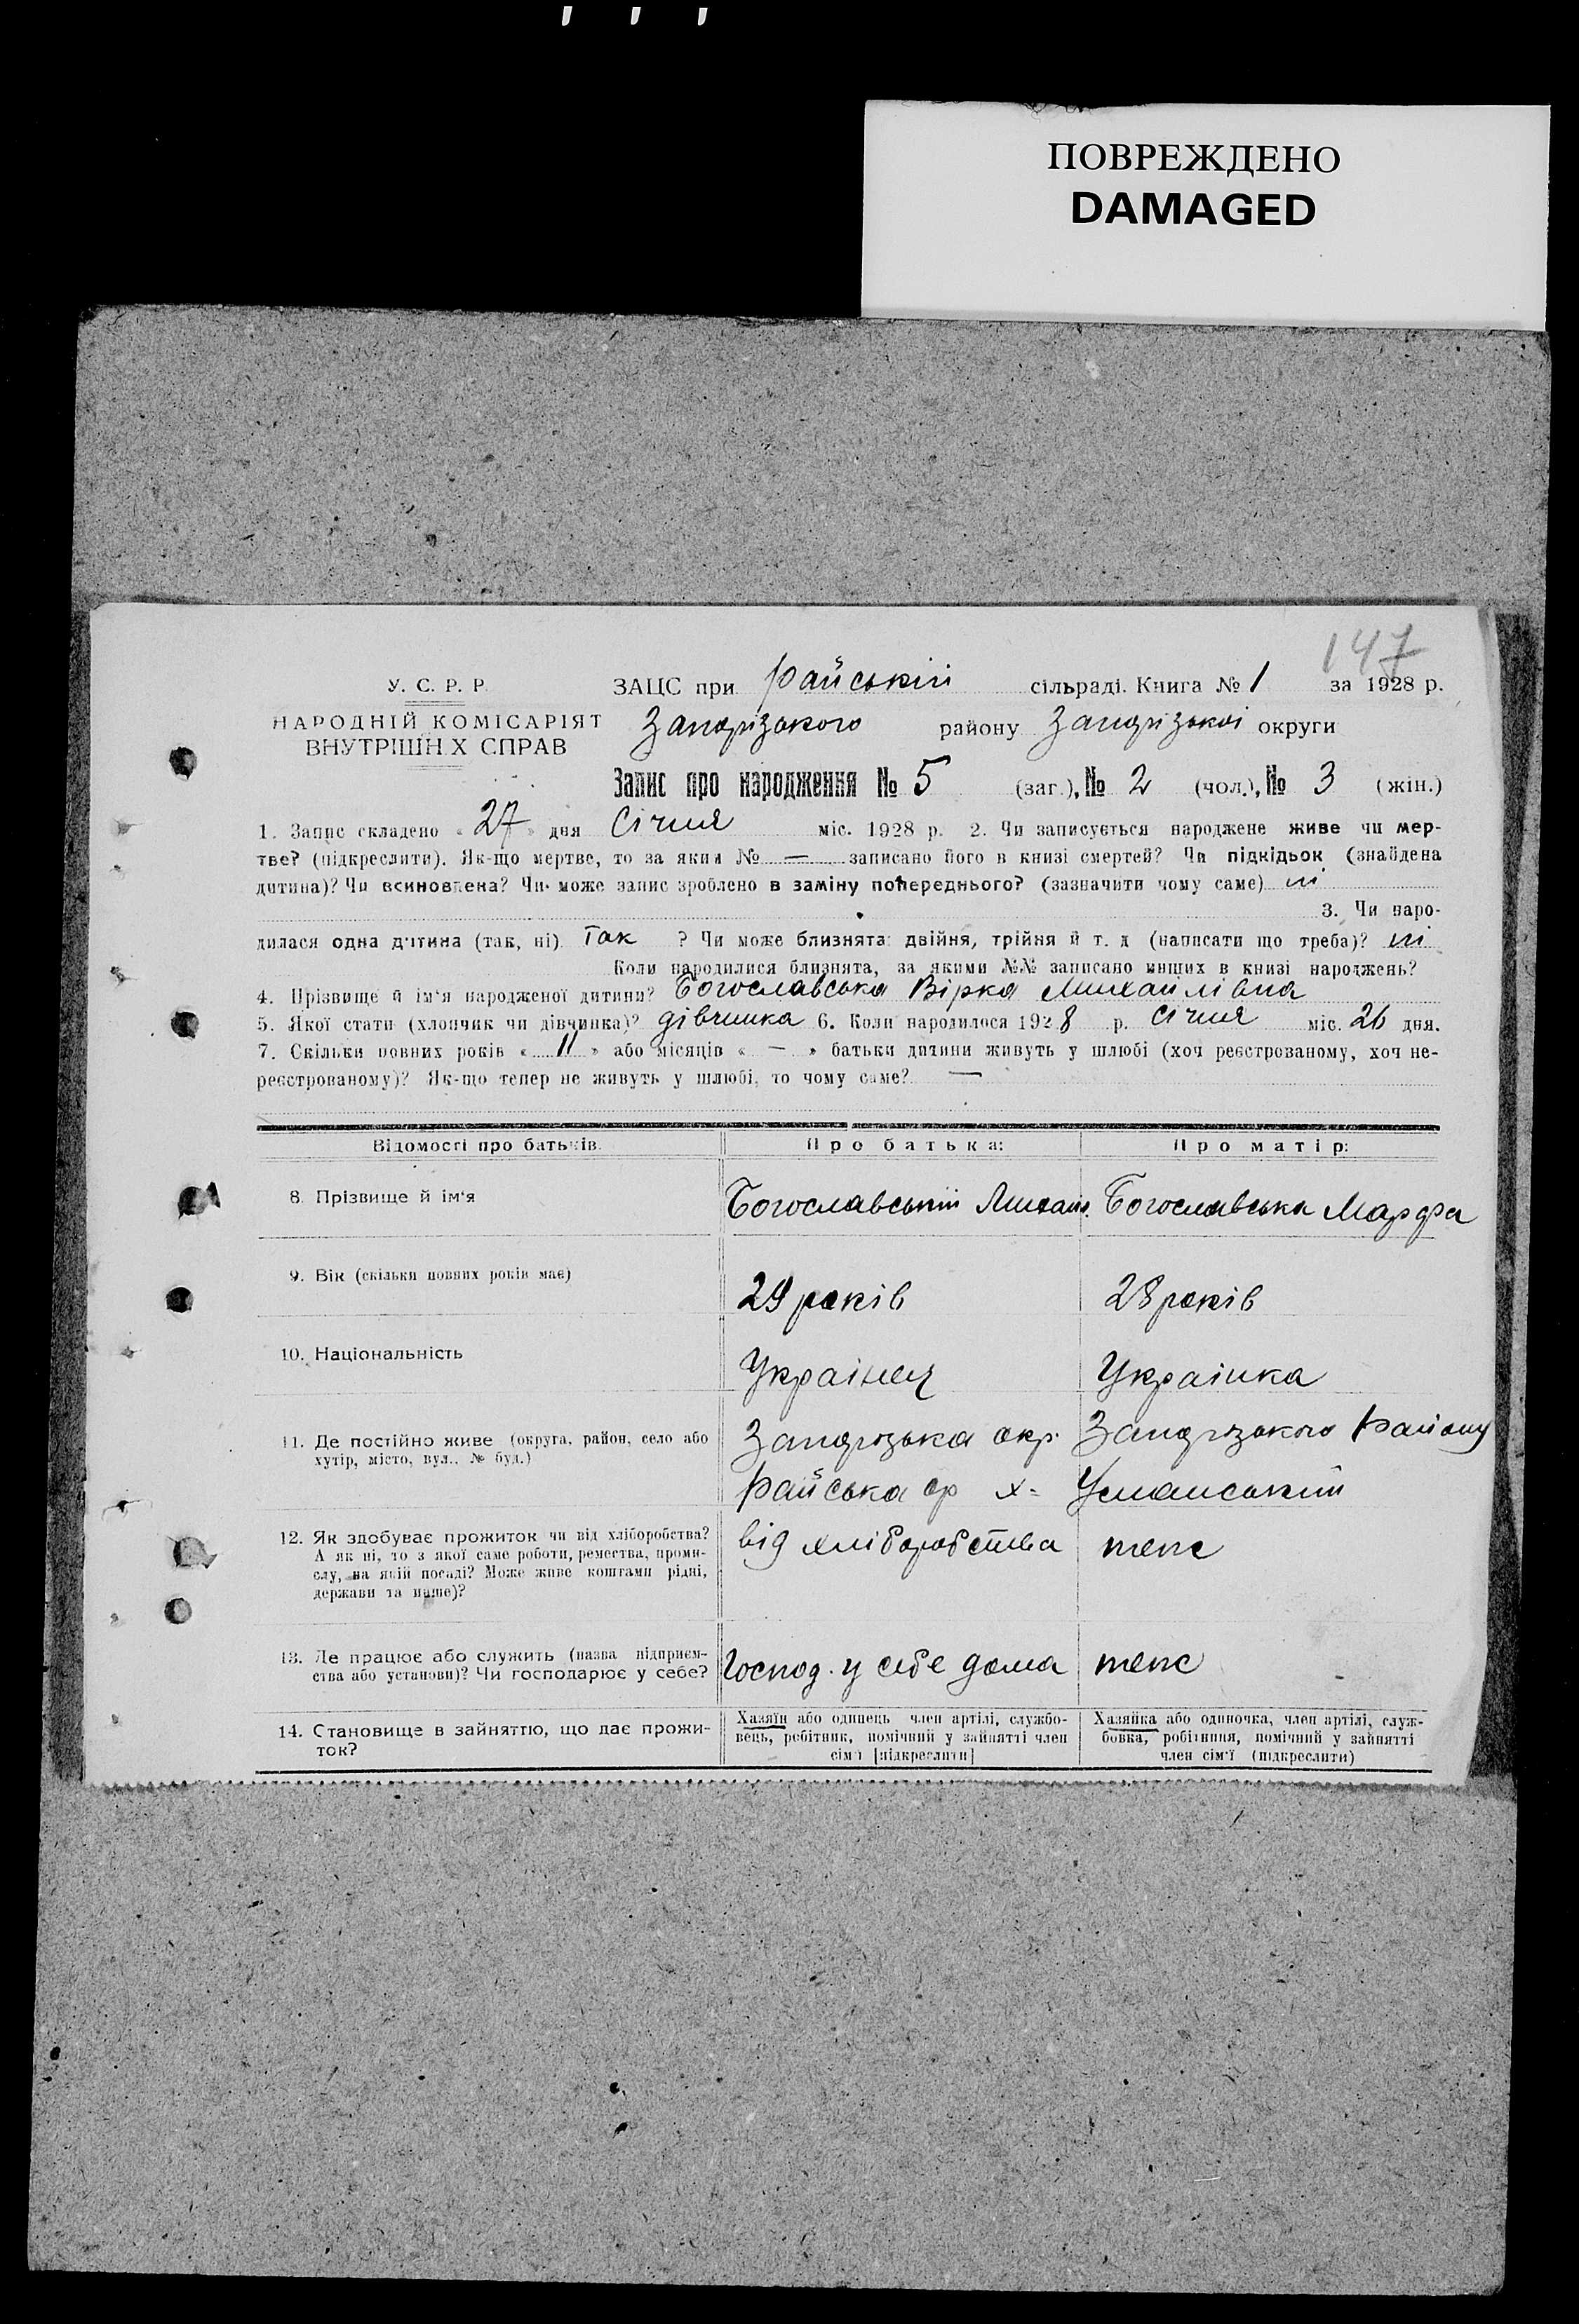 ПОВРЕЖДЕНО
DAMAGED
147
У. С. Р. Р.
НАРОДНІЙ КОМІСАРІЯТ
ВНУТРІШНІХ СПРАВ
ЗАЦС при Райській сільраді. Книга № 1 за 1928 р.
Запорізького району Запорізької округи
Запис про народження № 5 (заг.), № 2 (чол.), № 3 (жін.)
1. Запис складено « 27 » дня Січня міс. 1928 р. 2. Чи записується народжене живе чи мер-
тве? (підкреслити). Як-що мертве, то за яким № — записано його в книзі смертей? Чи підкідьок (знайдена
дитина)? Чи всиновлена? Чи може запис зроблено в заміну попереднього? (зазначити чому саме) ні
3. Чи наро-
дилася одна дитина (так, ні) Так ? Чи може близнята: двійня, трійня й т. д (написати що треба)? ні
Коли народилися близнята, за якими №№ записано инших в книзі народжень?
4. Прізвище й ім'я народженої дитини? Богославська Вірка Михайлівна
5. Якої стати (хлопчик чи дівчинка)? дівчинка 6. Коли народилося 1928 р. Січня міс. 26 дня.
7. Скільки повних років « 11 » або місяців « — » батьки дитини живуть у шлюбі (хоч реєстрованому, хоч не-
реєстрованому)? Як-що тепер не живуть у шлюбі, то чому саме? —
Відомості про батьків. Про батька: Про матір:
8. Прізвище й ім'я Богославський Михайл. Богославська Марфа
9. Вік (скільки повних років має) 29 років 28 років
10. Національність Українец Українка
11. Де постійно живе (округа, район, село або
хутір, місто, вул., № буд.)
Запорізька окр. Запорізького Району
Райська ср х= Уманський
12. Як здобуває прожиток чи від хліборобства?
А як ні, то з якої саме роботи, ремества, проми-
слу, на якій посаді? Може живе коштами рідні,
держави та инше)?
від хліборобства теж
13. Де працює або служить (назва підприєм-
ства або установи)? Чи господарює у себе?
Господ. у себе дома теж
14. Становище в зайняттю, що дає прожи-
ток?
Хазяїн або одинець член артілі, службо-
вець, робітник, помічний у зайнятті член
сім'ї [підкреслити]
Хазяйка або одиночка, член артілі, служ-
бовка, робітниця, помічний у зайнятті
член сім'ї (підкреслити)